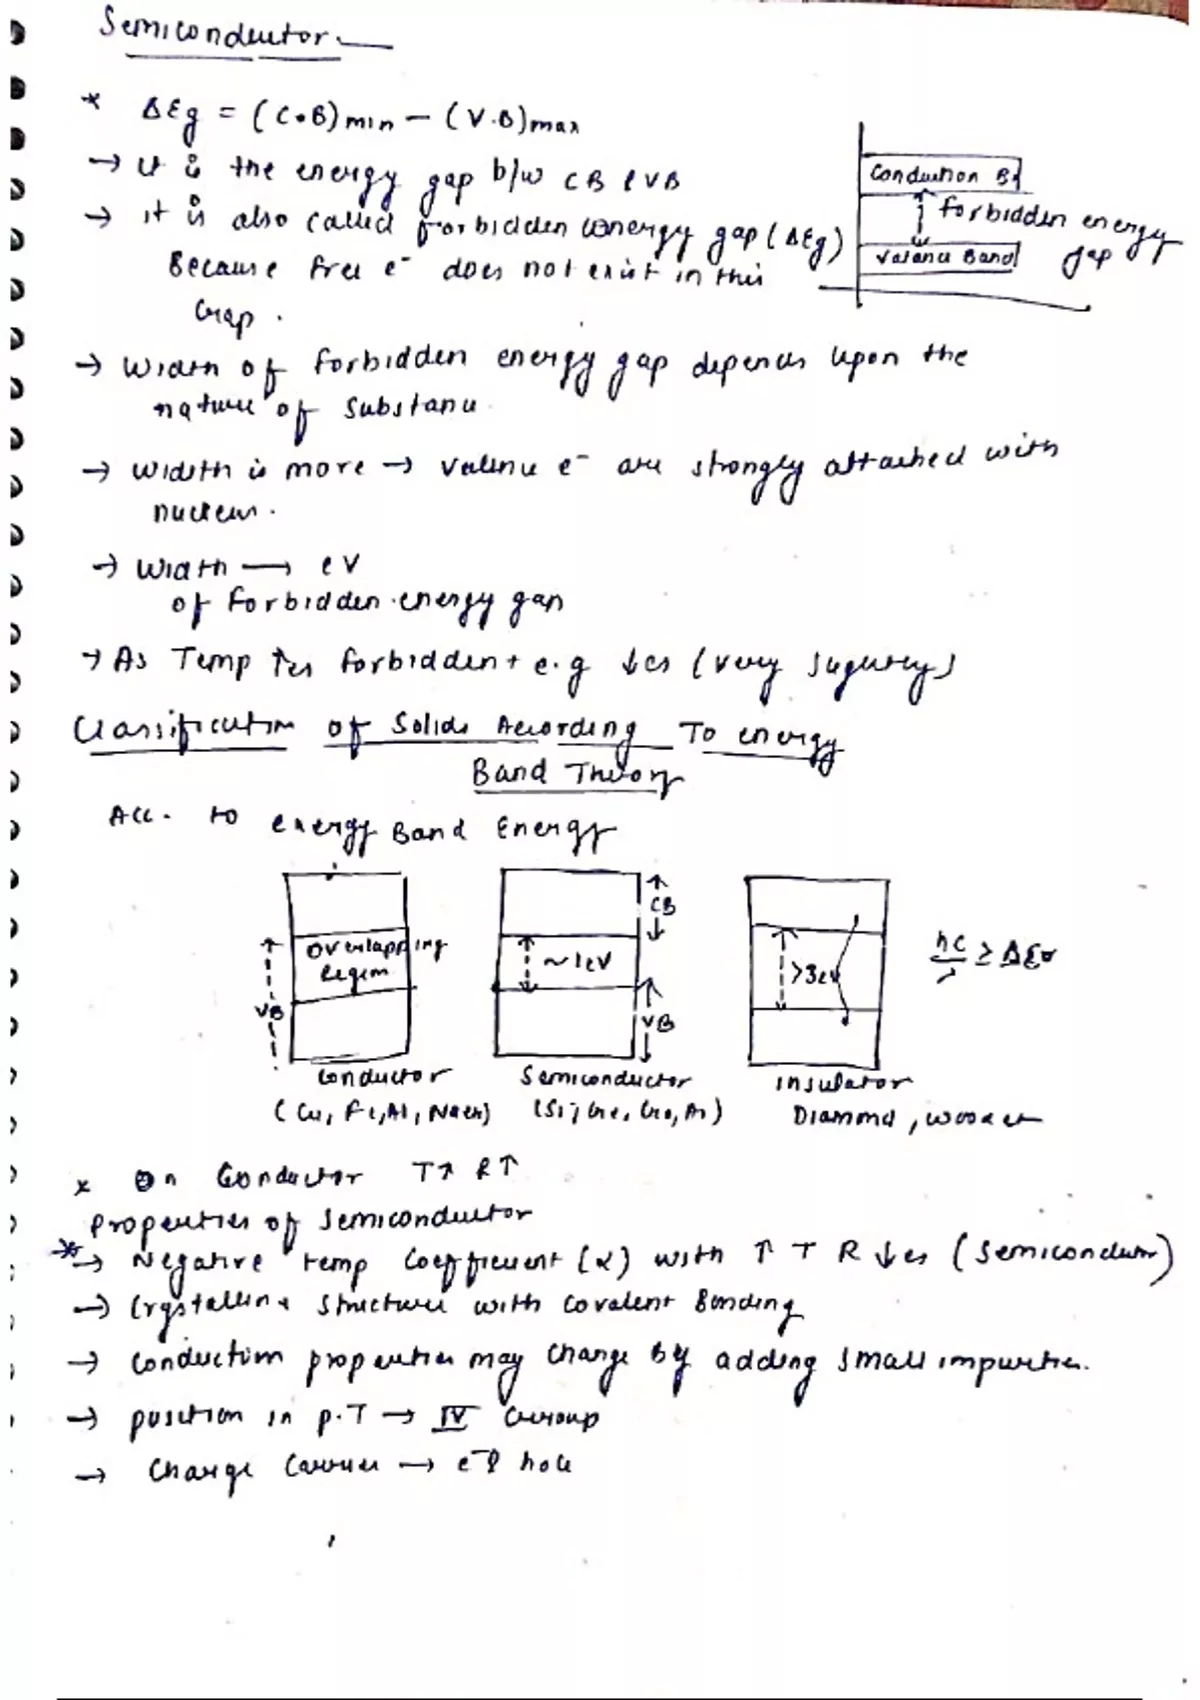 Semiconductor
* ΔEg = (C.B)min — (V.B)max
→ It is the energy gap b/w CB & VB
→ it is also called forbidden energy gap (ΔEg)
Because free e⁻ does not exist in this
Gap.
Conduction B
forbidden energy
gap
Valance Band
→ Width of forbidden energy gap depends upon the
nature of substance.
→ Width is more → valence e⁻ are strongly attached with
nucleus.
→ Width → eV
of forbidden energy gap
→ As Temp ↑es forbidden e.g ↓es (very
Classification of Solids According To energy
Band Theory
Acc. to energy Band Energy
Overlapping
Region
VB
Conductor
(Cu, Fe, Al,
CB
~1eV
VB
Semiconductor
(Si, Ge,
>3eV
Insulator
Diamond,
hc/λ ≥ ΔEg
* On Conductor T↑ R↑
Properties of Semiconductor
* → Negative temp Coefficient (α) with ↑ T R ↓es (Semiconductor)
→ Crystalline Structure with Covalent Bonding
→ Conduction properties may change by adding small impurities.
→ position in p.T → IV Group
→ Charge Carrier → e⁻ & hole